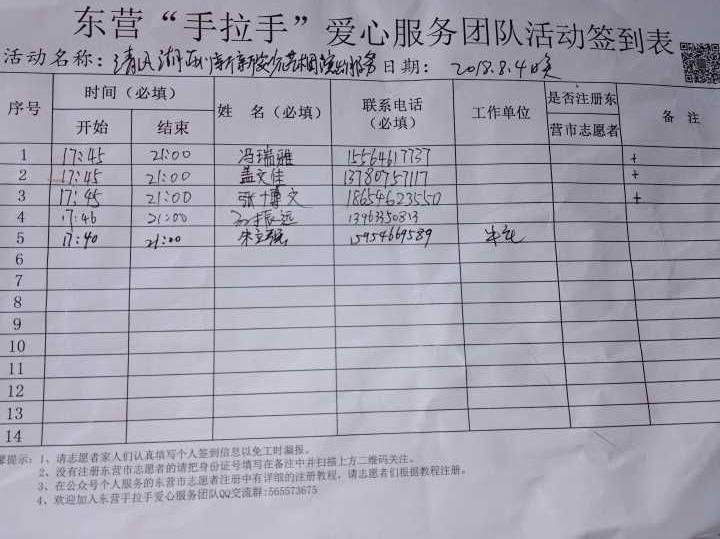 东营“手拉手”爱心服务团队活动签到表
活动名称：清风湖 演出服务 日期：2018.8.4晚
序号 时间（必填） 姓 名（必填） 联系电话（必填） 工作单位 是否注册东营市志愿者 备 注
开始 结束
1 17:45 21:00 冯瑞雅 15564617737 +
2 17:45 21:00 盖文佳 13780757117 +
3 17:45 21:00 张博文 18654623550 +
4 17:46 21:00 孙振远 13963350813
5 17:40 21:00 朱立强 15954669589
6
7
8
9
10
11
12
13
14
馨提示：1、请志愿者家人们认真填写个人签到信息以免工时漏报。
2、没有注册东营市志愿者的请把身份证号填写在备注中并扫描上方二维码关注。
3、在公众号个人服务的东营市志愿者注册中有详细的注册教程，请志愿者们根据教程注册。
4、欢迎加入东营手拉手爱心服务团队QQ交流群:565573675